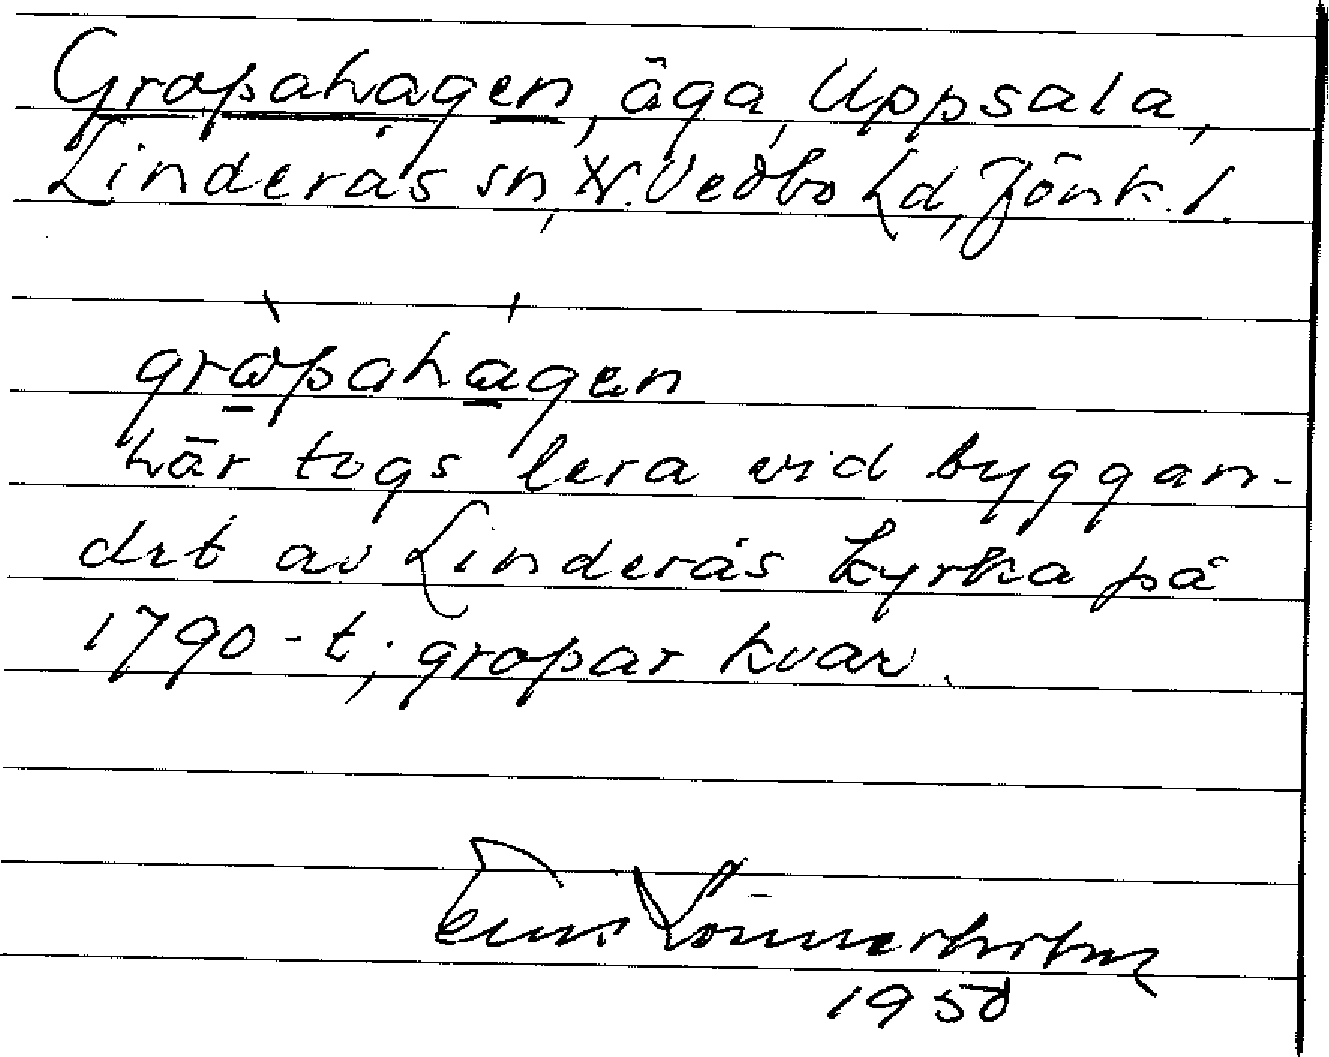 Gropahagen, äga, Uppsala,
Linderås sn, N. Vedbo hd, Jönk. l.
grɷ̀pahágen
här togs lera vid byggan-
det av Linderås kyrka på
1790-t.; gropar kvar.
Lönnerholm
1950